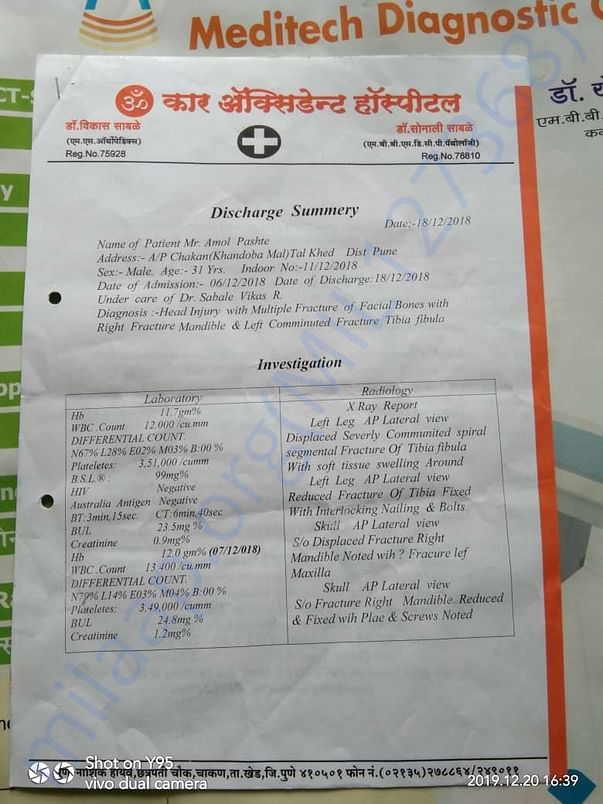 Meditech Diagnostic C
CT-S
डॉ.
एम.बी.बी
ॐ कार ॲक्सिडेन्ट हॉस्पीटल
डॉ.विकास साबळे
(एम.एस.ऑर्थोपेडिक्स)
Reg.No.75928
डॉ.सोनाली साबळे
(एम.बी.बी.एस.डि.सी.पी.पॅथोलॉजी)
Reg.No.78810
Discharge Summery
Date:-18/12/2018
Name of Patient Mr. Amol Pashte
Address:- A/P Chakan(Khandoba Mal)Tal Khed Dist Pune
Sex:- Male. Age:- 31 Yrs. Indoor No:-11/12/2018
Date of Admission:- 06/12/2018 Date of Discharge:18/12/2018
Under care of Dr. Sabale Vikas R.
Diagnosis :-Head Injury with Multiple Fracture of Facial Bones with
Right Fracture Mandible & Left Comminuted Fracture Tibia fibula
Investigation
Laboratory
Hb 11.7gm%
WBC Count 12.000 /cu.mm
DIFFERENTIAL COUNT.
N67% L28% E02% M03% B:00 %
Plateletes: 3,51,000 /cumm
B.S.L.®: 99mg%
HIV Negative
Australia Antigen Negative
BT:3min,15sec. CT:6min,40sec
BUL 23.5mg %
Creatinine 0.9mg%
Hb 12.0 gm% (07/12/018)
WBC Count 13,400 /cu.mm
DIFFERENTIAL COUNT.
N79% L14% E03% M04% B:00 %
Plateletes: 3,49,000 /cumm
BUL 24.8mg %
Creatinine 1.2mg%
Radiology
X Ray Report
Left Leg AP Lateral view
Displaced Severly Communited spiral
segmental Fracture Of Tibia fibula
With soft tissue swelling Around
Left Leg AP Lateral view
Reduced Fracture Of Tibia Fixed
With Interlocking Nailing & Bolts
Skull AP Lateral view
S/o Displaced Fracture Right
Mandible Noted wih ? Fracure lef
Maxilla
Skull AP Lateral view
S/o Fracture Right Mandible Reduced
& Fixed wih Plae & Screws Noted
पुणे नाशिक हायवे,छत्रपती चौक,चाकण,ता.खेड,जि.पुणे ४१०५०१ फोन नं.(०२१३५)२७८८६४/२४९०११
Shot on Y95
vivo dual camera
2019.12.20 16:39